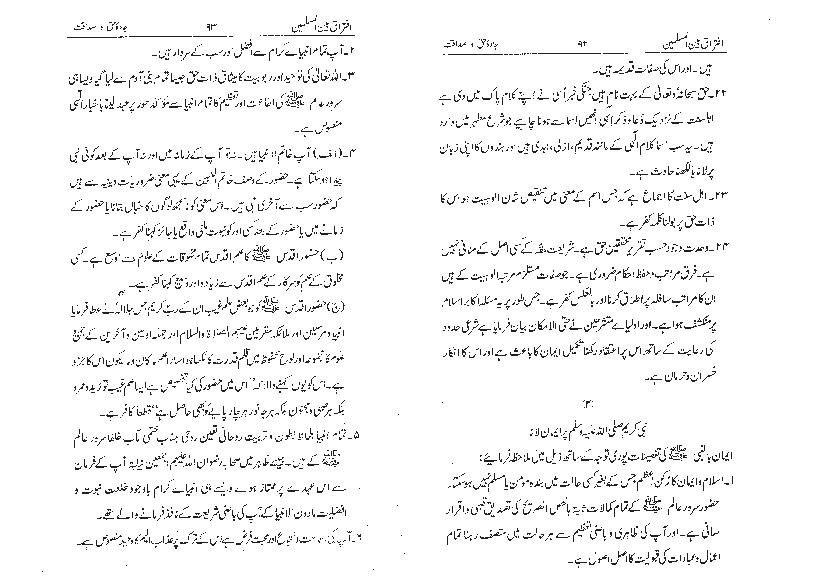 افتراق بین المسلمین ۹۲ جادۂ حق و صداقت
ہیں۔ اور اس کی صفات قدیمہ ہیں۔
۲۲۔ حق سبحانہ و تعالیٰ کے بہت نام ہیں جنکی خبر اُسی نے اپنے کلام پاک میں دی ہے
اہلسنت کے نزدیک دُعاء و ذکر اُسی انھیں اسما سے ہونا چاہیے جو شرع مطہر میں وارد
ہیں۔ یہ سب اسما کلام الٰہی کے مانند قدیم، ازلی، ابدی ہیں اور بندوں کا اپنی زبان
پر لانا یا لکھنا حادث ہے۔
۲۳۔ اہل سنت کا اجماع ہے کہ جس اسم کے معنی میں تنقیص شان الوہیت ہو اس کا
ذات حق پر بولنا کلمہ کفر ہے۔
۲۴۔ وحدت وجود حسب تقریر محققین حق ہے۔ شریعت حقہ کے کسی اصل کے منافی نہیں
ہے۔ فرق مراتب و حفظ احکام ضروری ہے۔ جو صفات مستلزم مرتبہ الوہیت کے ہیں
ان کا مراتب سافلہ پر اطلاق کرنا اور بالعکس کفر ہے۔ جس طور پر یہ مسئلہ اکابر اسلام
پر منکشف ہوا ہے۔ اور اولیائے متشرعین نے حتی الامکان بیان فرمایا ہے شرعی حدود
کی رعایت کے ساتھ اس پر اعتقاد رکھنا تکمیل ایمان کا باعث ہے اور اس کا انکار
خسران و حرمان ہے۔
نبی کریم صلی اللہ علیہ وسلم پر ایمان لانا
ایمان بالنبی ﷺ کی تفصیلات پوری توجہ کے ساتھ ذیل میں ملاحظہ فرمائیے:
۱۔ اسلام و ایمان کا رکن اعظم جس کے بغیر کسی حالت میں بندہ مومن یا مسلم نہیں ہو سکتا۔
حضور سرور عالم ﷺ کے تمام کمالات ثابتہ بالنص الصریح کی تصدیق قلبی و اقرار
لسانی ہے۔ اور آپ کی ظاہری و باطنی تعظیم سے ہر حالت میں متصف رہنا تمام
اعمال و عبادات کی قبولیت کا اصل اصول ہے۔
افتراق بین المسلمین ۹۳ جادۂ حق و صداقت
۲۔ آپ تمام انبیائے کرام سے افضل اور سب کے سردار ہیں۔
۳۔ اللہ تعالیٰ کی توحید اور ربوبیت کا میثاق ذات حق جیسا تمام بنی آدم سے لیا گیا ویسا ہی
سرور عالم ﷺ کی اطاعت اور تعظیم کا تمام انبیا سے مؤکد طور پر عہد لینا باخبار الٰہی
منصوص ہے۔
۴۔ (الف) آپ خاتم الانبیا ہیں۔ نہ تو آپ کے زمانہ میں اور نہ آپ کے بعد کوئی نبی
پیدا ہو سکتا ہے۔ حضور کے وصف خاتم النبیین کے یہی معنی ضروریات دینیہ سے ہیں
کہ حضور سب سے آخری نبی ہیں۔ اس معنی کو ناسمجھ لوگوں کا خیال بتانا یا حضور کے
زمانے میں یا حضور کے بعد کسی اور کو نبوت ملنی واقع یا جائز کہنا کفر ہے۔
(ب) حضور اقدس ﷺ کا علم اقدس تمام مخلوقات کے علوم سے وسیع ہے۔ کسی
مخلوق کے علم کو سرکار کے علم اقدس سے زیادہ اور وسیع کہنا کفر ہے۔
(ج) حضور اقدس ﷺ کو جو بعض علم غیب ان کے رب کریم جل جلالہ نے عطا فرمایا
انبیا و مرسلین اور ملائکہ مقربین علیہم الصلاۃ والسلام اور جملہ اولین و آخرین کے جمیع
علوم کا مجموعہ اور لوح محفوظ میں قلم قدرت کا لکھا ہوا سارا علم ما کان و ما یکون اس کا جزو
ہے۔ اس کو یوں کہنے والا کہ "اس میں حضور کی کیا تخصیص ہے ایسا علم غیب تو زید و عمرو
بلکہ ہر صبی و مجنون بلکہ ہر جانور ہر چار پائے کو بھی حاصل ہے" قطعاً کافر ہے۔
۵۔ تمام انبیا بلحاظ بطون و تربیت روحانی تعین روحی جناب ختمی مآب خلفا سرور عالم
ﷺ کے ہیں۔ جیسے ظاہر میں صحابہ رضوان اللہ علیہم اجمعین نیابۃً آپ کے فرمان
سے اس عہدے پر ممتاز ہوئے ویسے ہی انبیائے کرام باوجود خلعت نبوت و
افضلیت مادون الانبیا کے آپ کی باطنی شریعت کے نافذ فرمانے والے تھے۔
۶۔ آپ کی اتباع اور محبت فرض ہے اس کے ترک پر عذاب الیم کا وعید منصوص ہے۔